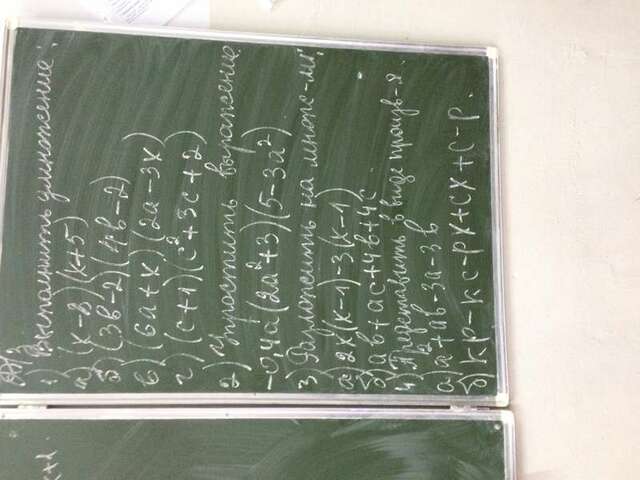 х+1.
Д/З
1) Выполнить умножение:
а) (х-8)(х+5)
б) (3в-2)(4в-2)
в) (6а+х)(2а-3х)
г) (с+1)(с²+3с+2)
2) Упростить выражение.
-0,4а(2а²+3)(5-3а²)
3) Разложить на множ-ли:
а) 2х(х-1)-3(х-1)
б) ав+ас+4в+4с
4) Представить в виде произв-я.
а) а²+ав-3а-3в
б) кр-кс-рх+сх+с-р.